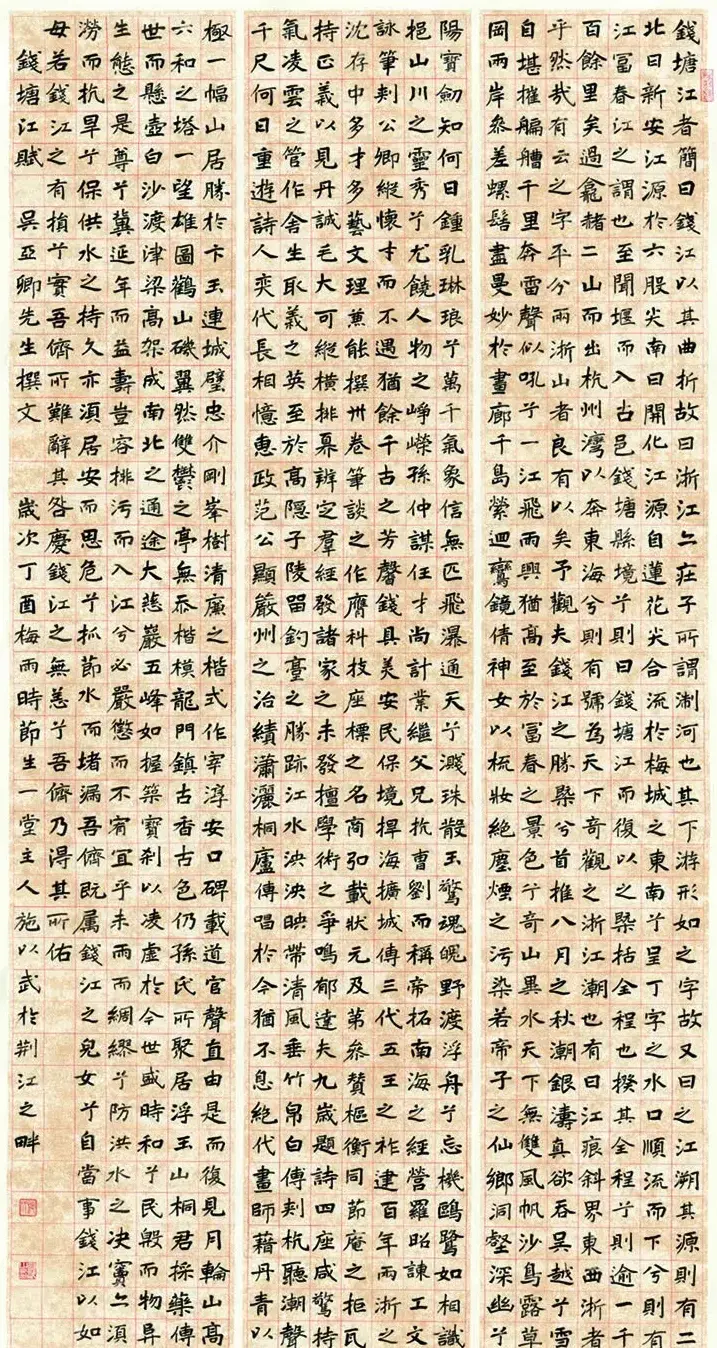 錢塘江者簡曰錢江以其曲折故曰浙江亦莊子所謂淛河也其下游形如之字故又曰之江溯其源則有二
北曰新安江源於六股尖南曰開化江源自蓮花尖合流於梅城之東南兮呈丁字之水口順流而下兮則有
江富春江之謂也至聞堰而入古邑錢塘縣境兮則曰錢塘江而復以之槩括全程也揆其全程兮則逾一千
百餘里矣過龕赭二山而出杭州灣以奔東海兮則有號為天下奇觀之浙江潮也有曰江痕斜界東西浙者
乎然哉有云之字平分兩浙山者良有以矣予觀夫錢江之勝槩兮首推八月之秋潮銀濤真欲吞吳越兮雪
自堪摧艑艚千里奔雷聲似吼兮一江飛雨興猶高至於富春之景色兮奇山異水天下無雙風帆沙鳥露草
岡兩岸參差螺髻盡曼妙於畫廊千島縈迴鸞鏡倩神女以梳妝絕塵煙之污染若帝子之仙鄉洞壑深幽兮
陽寶劍知何日鍾乳琳琅兮萬千氣象信無匹飛瀑通天兮濺珠散玉驚魂魄野渡浮舟兮忘機鷗鷺如相識
挹山川之靈秀兮尤饒人物之崢嶸孫仲謀任才尚計業繼父兄抗曹劉而稱帝拓南海之經營羅昭諫工文
詠筆刺公卿縱懷才而不遇猶餘千古之芳馨錢具美安民保境捍海擴城傳三代五王之祚建百年兩浙之
沈存中多才多藝文理兼能撰卅卷筆談之作膺科技座標之名商弘載狀元及第參贊樞衡同節庵之拒瓦
持正義以見丹誠毛大可縱橫排奡辨定羣經發諸家之未發擅學術之爭鳴郁達夫九歲題詩四座咸驚持
氣凌雲之管作舍生取義之英至於高隱子陵留釣臺之勝跡江水泱泱映帶清風垂竹帛白傅刺杭聽潮聲
千尺何日重遊詩人奕代長相憶惠政范公顯嚴州之治績瀟灑桐廬傳唱於今猶不息絕代畫師藉丹青以
極一幅山居勝於卞玉連城璧忠介剛峯樹清廉之楷式作宰淳安口碑載道官聲直由是而復見月輪山高
六和之塔一望雄圖鸛山磯翼然雙鬱之亭無忝楷模龍門鎮古香古色仍孫氏所聚居浮玉山桐君採藥傳
世而懸壺白沙渡津梁高架成南北之通途大慈巖五峰如握築寶剎以凌虛於今世盛時和兮民殷而物異
生態之是尊兮冀延年而益壽豈容排污而入江兮必嚴懲而不宥宜乎未雨而綢繆兮防洪水之決竇亦須
勞而抗旱兮保供水之持久亦須居安而思危兮抓節水而堵漏吾儕既属錢江之兒女兮自當事錢江以如
母若錢江之有損兮實吾儕所難辭其咎慶錢江之無恙兮吾儕乃得其所佑
錢塘江賦 吳亞卿先生撰文 歲次丁酉梅雨時節生一堂主人施以武於荆江之畔